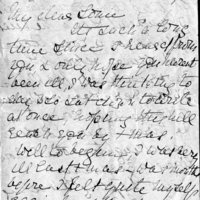 My dear
It is such a long
time since I heard from
you & only hope you havent
been ill, I was thinking to
day so sat down to write
at once hoping this will
reach you by Xmas.
Well to begin, I was very
ill last Xmas & was months
before I felt quite myself